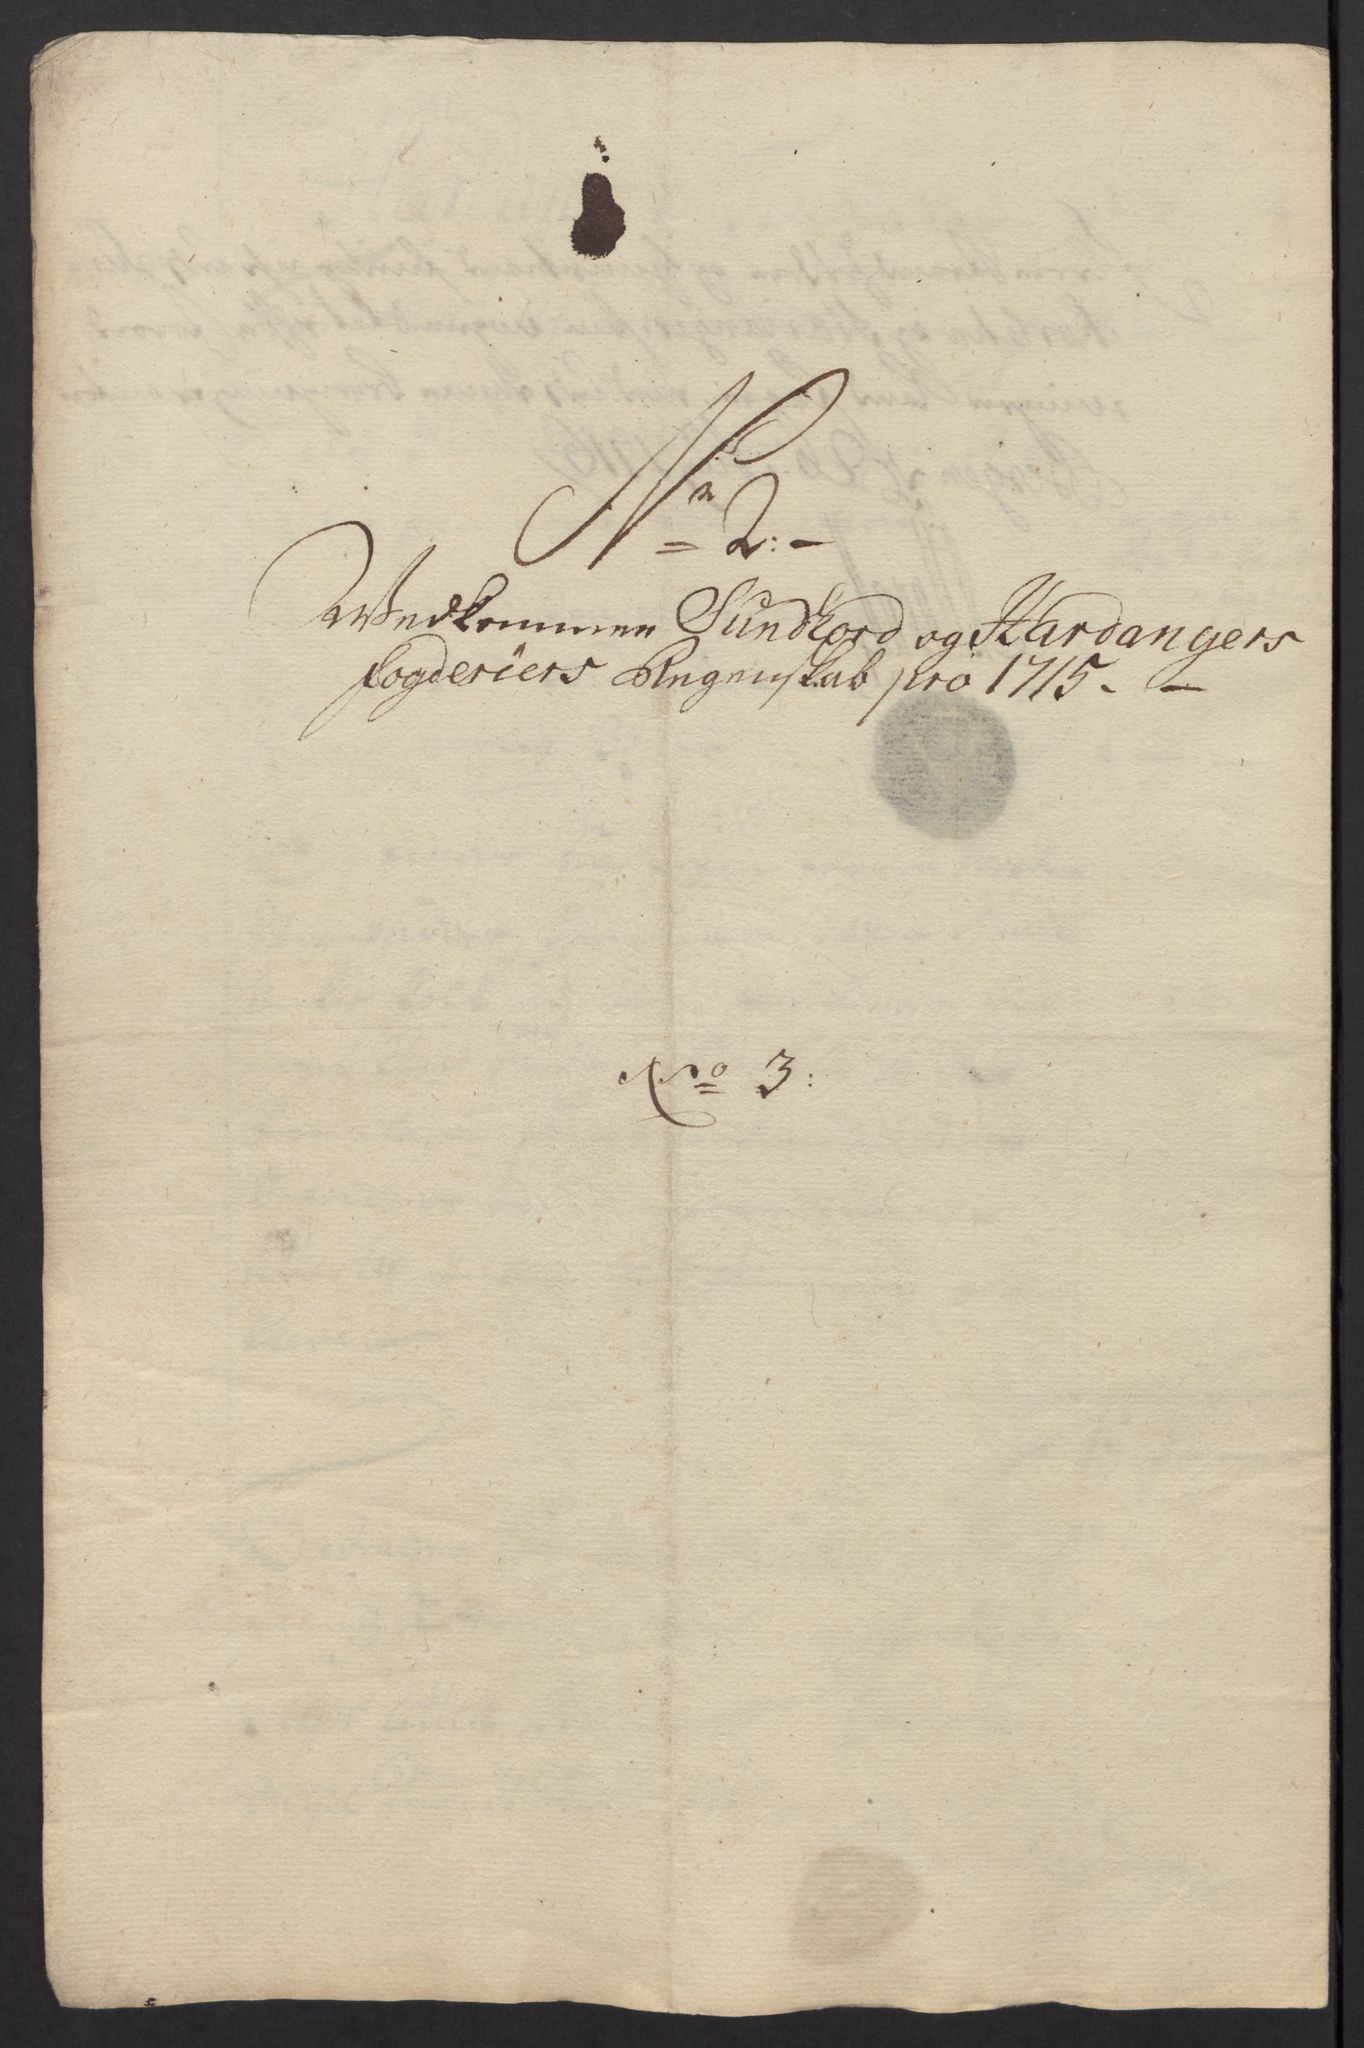 No 2:
Wedkommen Sundhord og Hardangers
fogderiers Regenskab pro 1715.
No 3: